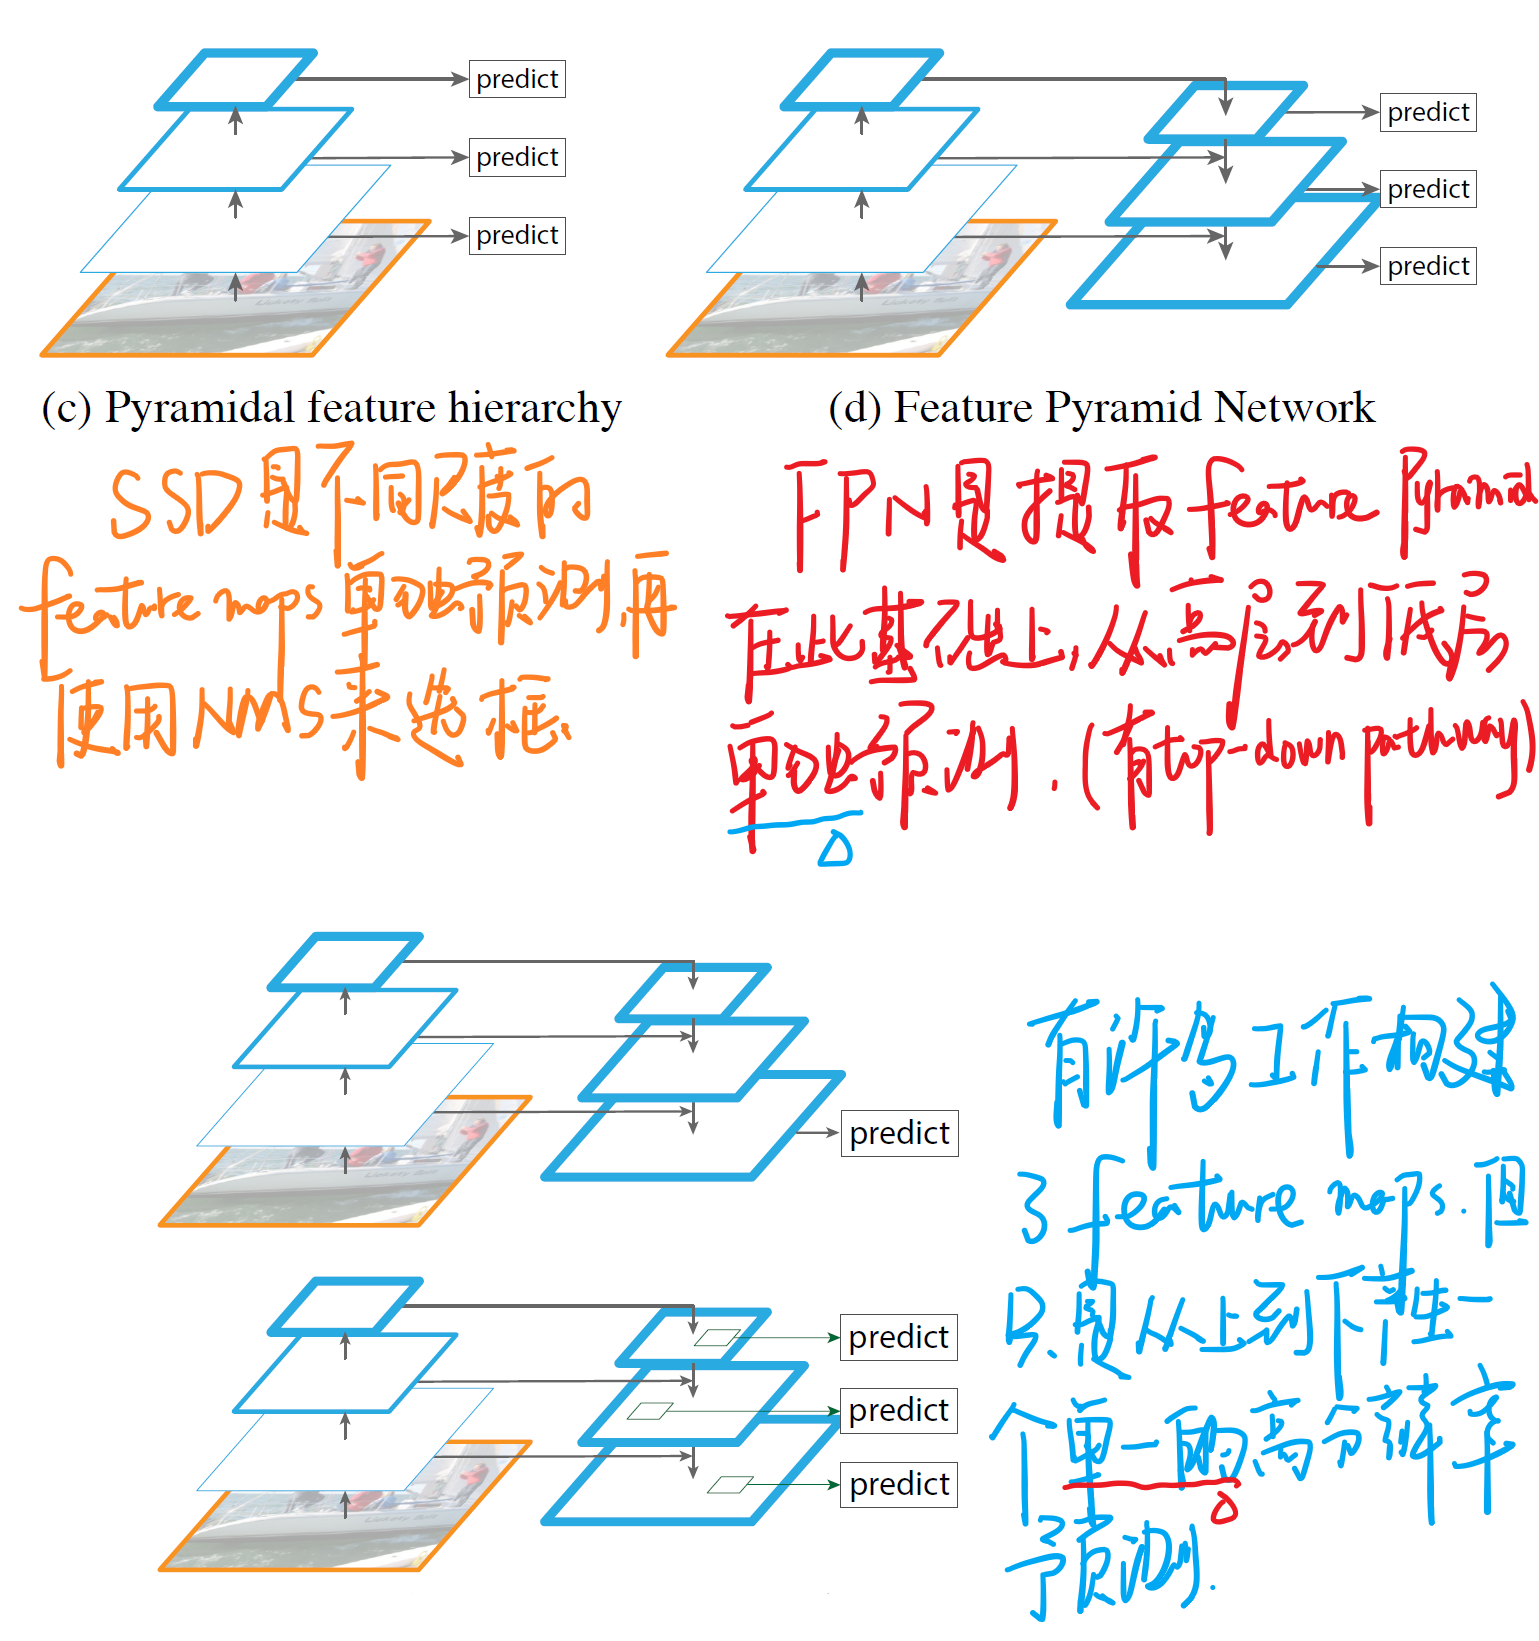 predict
predict
predict
predict
predict
predict
(c) Pyramidal feature hierarchy
(d) Feature Pyramid Network
SSD是不同尺度的
feature maps 单独预测,再
使用NMS来选框.
FPN是提取feature Pyramid
在此基础上,从高层到低层
单独预测.(有top-down pathway)
predict
predict
predict
predict
有许多工作构建
了feature maps.但
只是从上到下产生一
个单一的高分辨率
预测.